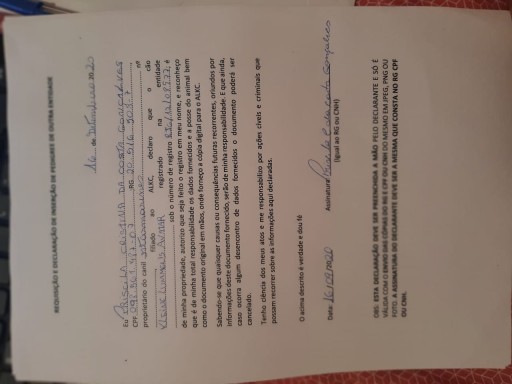 REQUISIÇÃO E DECLARAÇÃO DE INSERÇÃO DE PEDIGREE DE OUTRA ENTIDADE
16 de Setembro de 2020
Eu PRISCILA CRISTINA DA COSTA GONÇALVES
CPF RG nº
proprietário do canil filiado ao ALKC, declaro que o cão
registrado na entidade
sob o número de registro é
de minha propriedade, autorizo que seja feito o registro em meu nome, e reconheço
que é de minha total responsabilidade os dados fornecidos e a posse do animal bem
como o documento original em mãos, onde forneço a cópia digital para o ALKC.
Sabendo-se que quaisquer causas ou consequências futuras recorrentes, oriundos por
informações deste documento fornecido, serão de minha responsabilidade. E que ainda,
caso ocorra algum desencontro de dados fornecidos o documento poderá ser
cancelado.
Tenho ciência dos meus atos e me responsabilizo por ações cíveis e criminais que
possam recorrer sobre as informações aqui declaradas.
O acima descrito é verdade e dou fé
Data: Assinatura
(Igual ao RG ou CNH)
OBS: ESTA DECLARAÇÃO DEVE SER PREENCHIDA A MÃO PELO DECLARANTE E SÓ É
VÁLIDA COM O ENVIO DAS CÓPIAS DO RG E CPF OU CNH DO MESMO EM JPEG, PNG OU
FOTO. A ASSINATURA DO DECLARANTE DEVE SER A MESMA QUE CONSTA NO RG CPF
OU CNH.